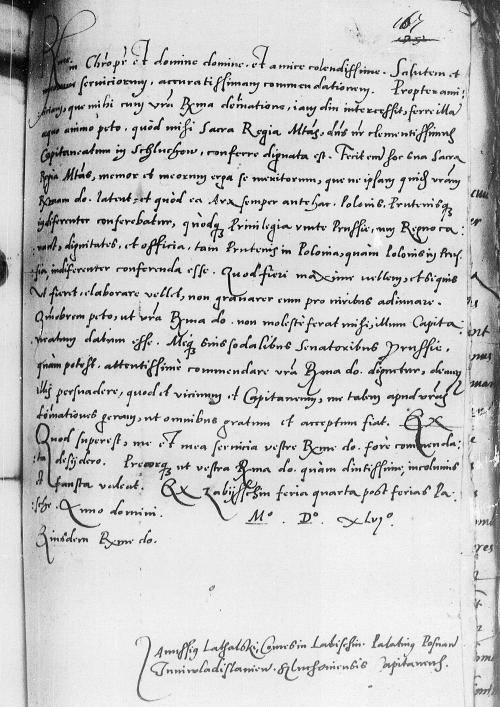 167
Rme in Chro pr et domine domine et amice colendissime. Salutem et
serviciorum, accuratissimam commendationem. Propter ami:
citiam, que mihi cum vra Rma do︤n︥atione, iam diu intercessit, ferre illa
animo peto, quod mihi Sacra Regia Mtas, dns mr clementissimus
Capitaneatum in Schluchow, conferre dignata est. Fecit em hoc ena Sacra
Regia Mtas, memor et meorum erga se meritorum, que ne ipsam quidem vram
Rmam do. latent, et quod ea Arx semper antehac Polonis, Prutenisq
indifferenter conferebatur, quodq Privilegia unite Prussie, cum Regno ca
vent, dignitates, et officia, tam Prutenis in Polonia, quam Polonis in Prus
sia indifferenter conferenda esse. Quod fieri maxime vellem, et si quis
ut fieret, elaborare vellet, non gravarer eum pro viribus adiuvare.
Quibrem peto, ut vra Rma do. non moleste ferat mihi, illum Capita
neatum datum esse. Meq suis sodalibus Senatoribus Prussie,
quam potest, attentissime commendare vra Rma do. dignetur, demum
illis persuadere, quod et vicinum et Capitaneum, me talem apud vras
dominationes geram, ut omnibus gratum et acceptum fiat.
Quod superest, me et mea servicia vestre Rme do. fore commenda:
ta desydero. Precorq ut vestra Rma do. quam diutissime, incolumis
et fausta valeat. Ex Zabijschin feria quarta post ferias Pa
sche. Anno domini. Mo. Do. XLvjo.
Eiusdem Rme do.
Janussius Lathalski Comes in Labischin. Palatinus Posnan
Juniwladislavien. Sluchoviensis Capitaneus.